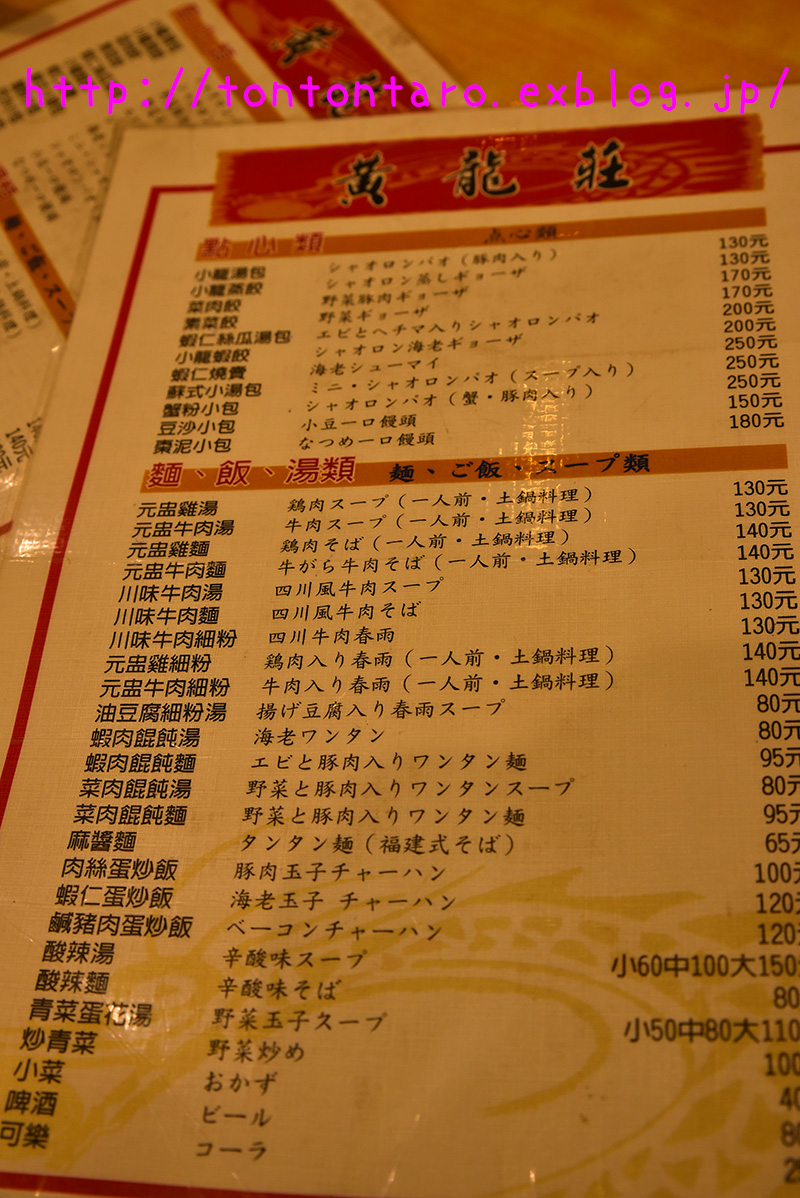 http://tontontaro.exblog.jp/
黃龍莊
點心類 点心類
小龍湯包 シャオロンパオ（豚肉入り） 130元
小龍蒸餃 シャオロン蒸しギョーザ 130元
菜肉餃 野菜豚肉ギョーザ 170元
素菜餃 野菜ギョーザ 170元
蝦仁絲瓜湯包 エビとヘチマ入りシャオロンパオ 200元
小龍蝦餃 シャオロン海老ギョーザ 200元
蝦仁燒賣 海老シューマイ 250元
蘇式小湯包 ミニ・シャオロンパオ（スープ入り） 250元
蟹粉小包 シャオロンパオ（蟹・豚肉入り） 250元
豆沙小包 小豆一口饅頭 150元
棗泥小包 なつめ一口饅頭 180元
麵、飯、湯類 麺、ご飯、スープ類
元盅雞湯 鶏肉スープ（一人前・土鍋料理） 130元
元盅牛肉湯 牛肉スープ（一人前・土鍋料理） 130元
元盅雞麵 鶏肉そば（一人前・土鍋料理） 140元
元盅牛肉麵 牛がら牛肉そば（一人前・土鍋料理） 140元
川味牛肉湯 四川風牛肉スープ 130元
川味牛肉麵 四川風牛肉そば 130元
川味牛肉細粉 四川牛肉春雨 130元
元盅雞細粉 鶏肉入り春雨（一人前・土鍋料理） 140元
元盅牛肉細粉 牛肉入り春雨（一人前・土鍋料理） 140元
油豆腐細粉湯 揚げ豆腐入り春雨スープ 80元
蝦肉餛飩湯 海老ワンタン 80元
蝦肉餛飩麵 エビと豚肉入りワンタン麺 95元
菜肉餛飩湯 野菜と豚肉入りワンタンスープ 80元
菜肉餛飩麵 野菜と豚肉入りワンタン麺 95元
麻醬麵 タンタン麺（福建式そば） 65元
肉絲蛋炒飯 豚肉玉子チャーハン 100元
蝦仁蛋炒飯 海老玉子 チャーハン 120元
鹹豬肉蛋炒飯 ベーコンチャーハン 120元
酸辣湯 辛酸味スープ 小60中100大150
酸辣麵 辛酸味そば 80
青菜蛋花湯 野菜玉子スープ 小50中80大110
炒青菜 野菜炒め 100
小菜 おかず 40
啤酒 ビール
可樂 コーラ